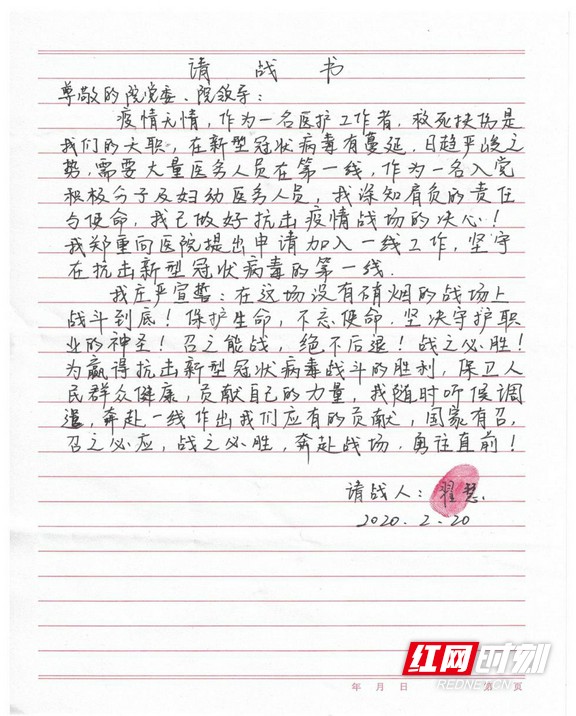 请战书
尊敬的院党委、院领导：
疫情无情，作为一名医护工作者，救死扶伤是
我们的天职，在新型冠状病毒有蔓延，日趋严峻之
势，需要大量医务人员在第一线，作为一名入党
积极分子及妇幼医务人员，我深知肩负的责任
与使命，我已做好抗击疫情战场的决心！
我郑重向医院提出申请加入一线工作，坚守
在抗击新型冠状病毒的第一线．
我庄严宣誓：在这场没有硝烟的战场上
战斗到底！保护生命，不忘使命．坚决守护职
业的神圣！召之能战，绝不后退！战之必胜！
为赢得抗击新型冠状病毒战斗的胜利，保卫人
民群众健康，贡献自己的力量，我随时听候调
遣，奔赴一线作出我们应有的贡献，国家有召，
召之必应，战之必胜，奔赴战场，勇往直前！
请战人：翟慧．
2020．2．20
红网时刻
REDNET.CN
年 月 日 第 页